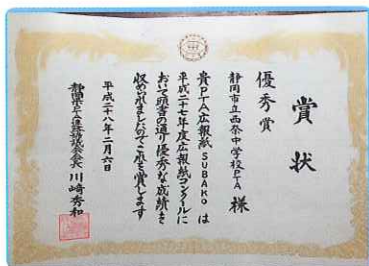 賞状
優秀賞
静岡市立西奈中学校PTA 様
貴PTA広報紙SUBAKOは
平成二十七年度広報紙コンクールに
おいて頭書の通り優秀な成績を
収められましたのでこれを賞します
平成二十八年二月六日
静岡県PTA連絡協議会会長 川崎秀和